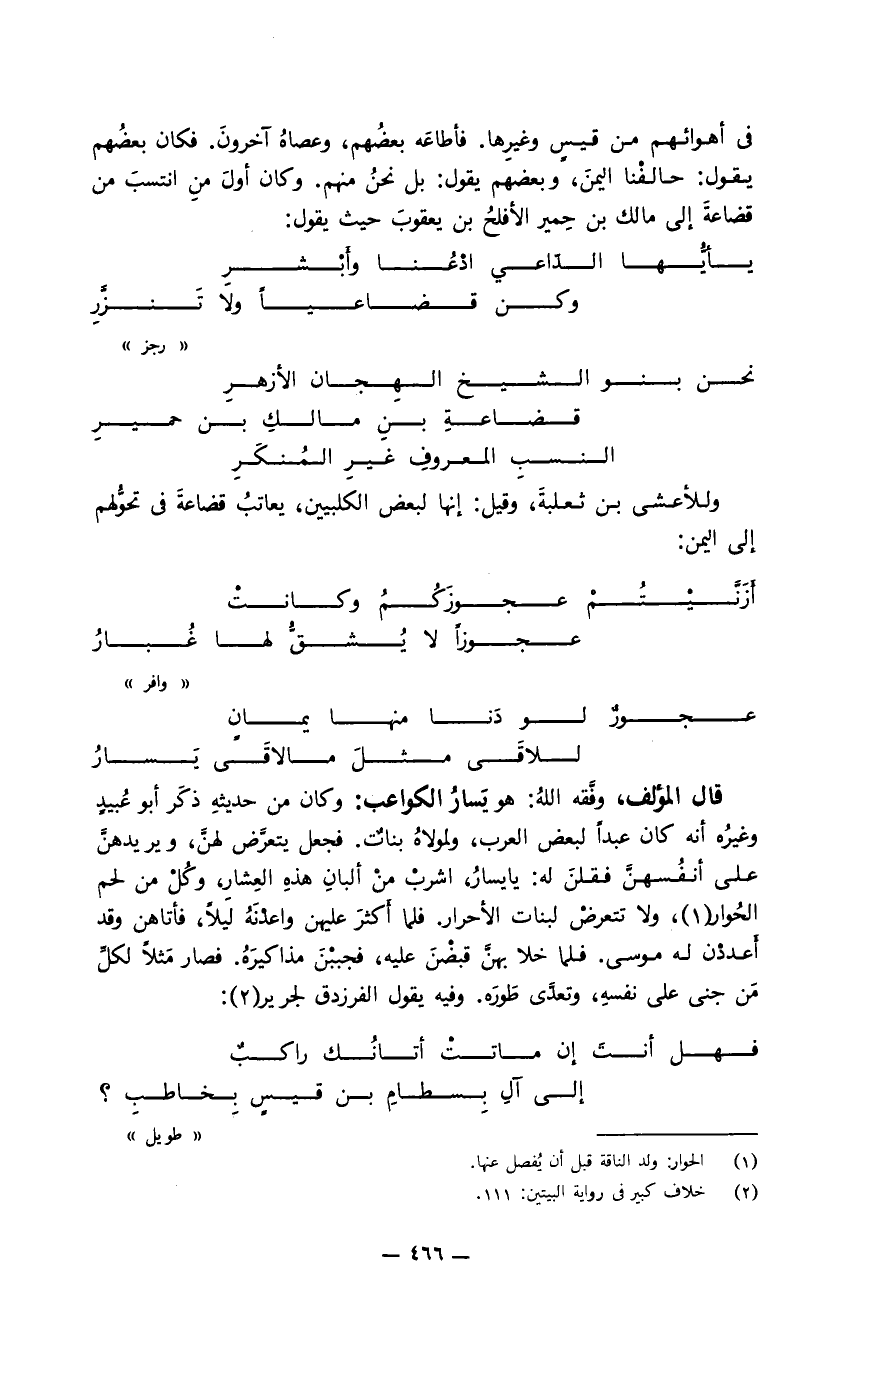 فى أهوائهم من قيسٍ وغيرِها. فأطاعَه بعضُهم، وعصاهُ آخرونَ. فكان بعضُهم
يقول: حالفْنا اليمنَ، وبعضهم يقول: بل نحنُ منهم. وكان أولَ منِ انتسبَ من
قضاعةَ إلى مالك بن حِمير الأفلحُ بن يعقوبَ حيث يقول:
يأيُّها الدّاعي ادْعُنا وأَبْشرِ
وكن قضاعياً ولا تَنزَّرِ
« رجز »
نحن بنو الشيخ الهِجان الأزهرِ
قضاعةِ بنِ مالكِ بن حميرِ
النسبِ المعروفِ غيرِ المُنكَرِ
وللأعشى بن ثعلبةَ، وقيل: إنها لبعض الكلبيين، يعاتبُ قضاعةَ فى تحوُّلهم
إلى اليمن:
أَزَنَّيْتُمْ عجوزَكُمُ وكانتْ
عجوزاً لا يُشقُّ لها غُبارُ
« وافر »
عجوزٌ لو دَنا منها يمانٍ
للاقَى مثلَ مالاقَى يَسارُ
قال المؤلف، وفَّقه اللهُ: هو يَسارُ الكواعب: وكان من حديثهِ ذكَر أبو عُبيدٍ
وغيرُه أنه كان عبداً لبعض العرب، ولمولاهُ بناتٌ. فجعل يتعرَّض لهنَّ، ويريدهنَّ
على أنفُسهنَّ فقلنَ له: يايسارُ، اشربْ منْ ألبانِ هذهِ العِشارِ، وكُلْ من لحم
الحُوارِ(١)، ولا تتعرضْ لبنات الأحرار. فلما أَكثرَ عليهن واعدْنَهُ ليلاً، فأتاهن وقد
أَعددْن له موسى. فلما خلا بهنَّ قبضْنَ عليه، فجببْنَ مذاكيرَهُ. فصار مَثلاً لكلِّ
مَن جنى على نفسهِ، وتعدَّى طَورَه. وفيه يقول الفرزدق لجرير(٢):
فهل أنتَ إن ماتتْ أتانُك راكبٌ
إلى آلِ بِسطامِ بن قيسٍ بِخاطبِ ؟
« طويل »
(١) الحوار: ولد الناقة قبل أن يُفصل عنها.
(٢) خلاف كبير فى رواية البيتين: ١١١.
— ٤٦٦ —